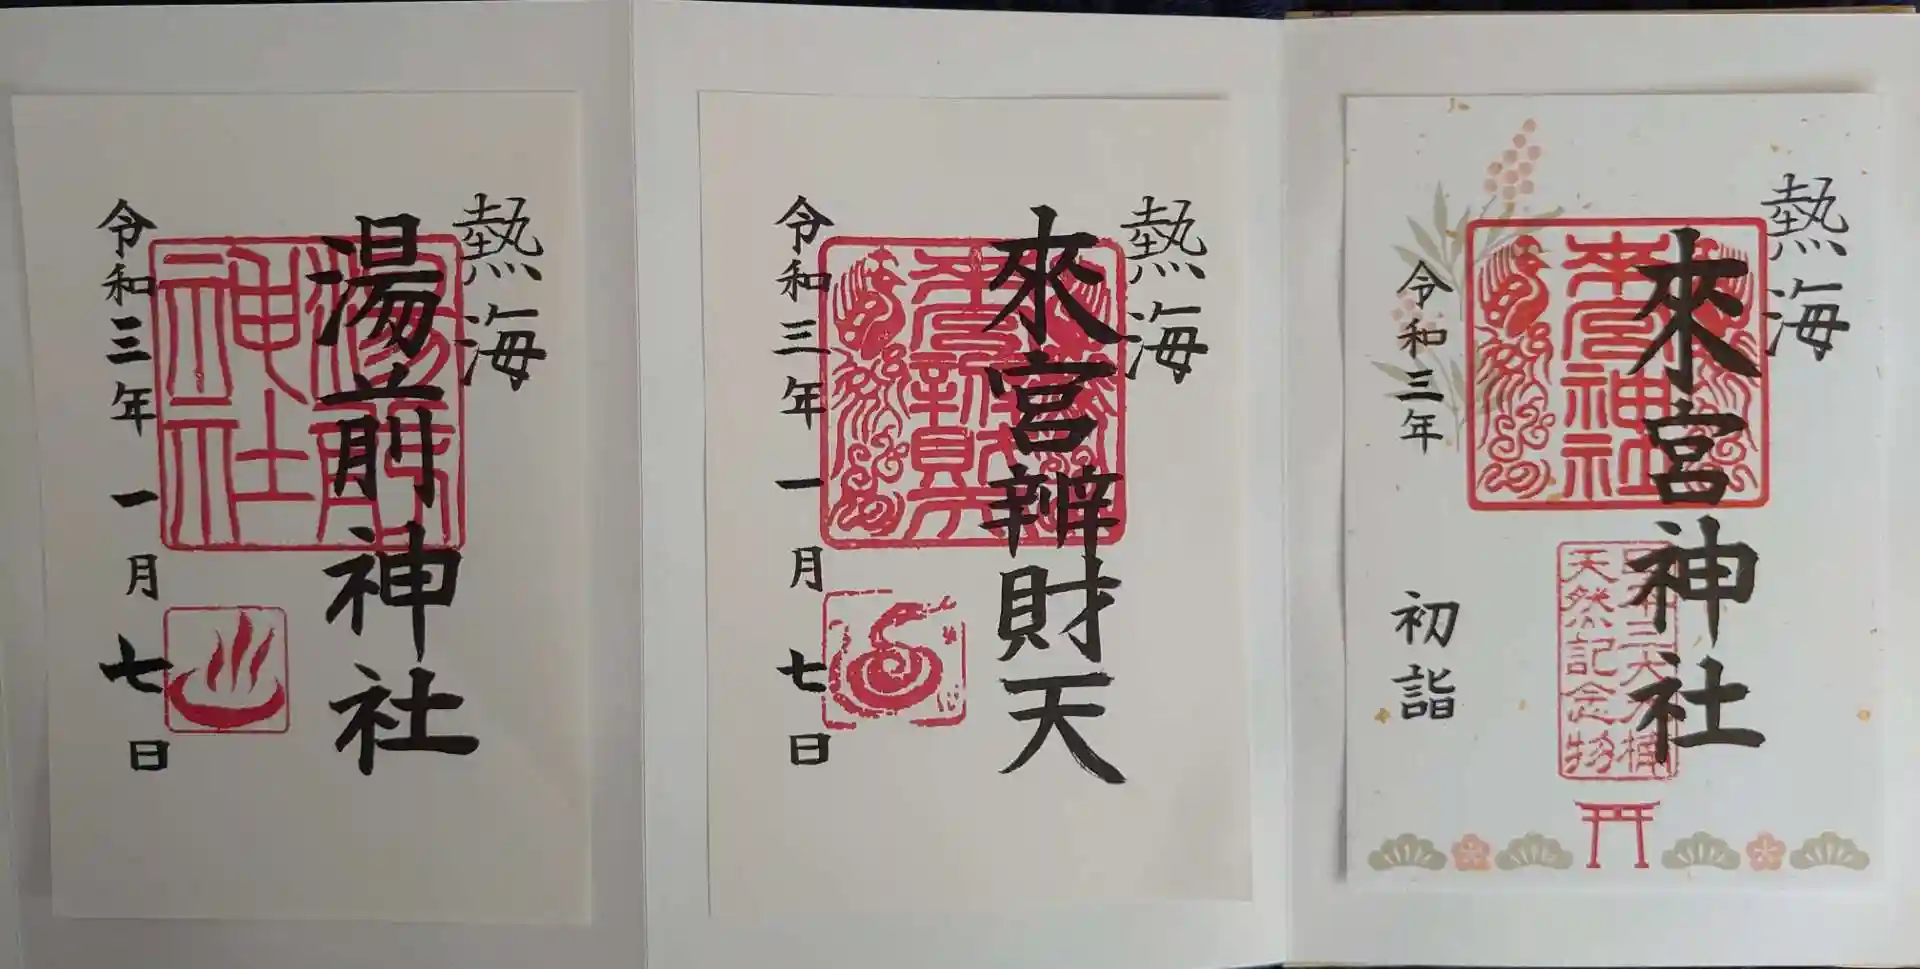 熱海
來宮神社
來宮神社
日本三大
天然記念物
令和三年
初詣
熱海
來宮辨財天
令和三年一月七日
熱海
湯前神社
湯前神社
令和三年一月七日